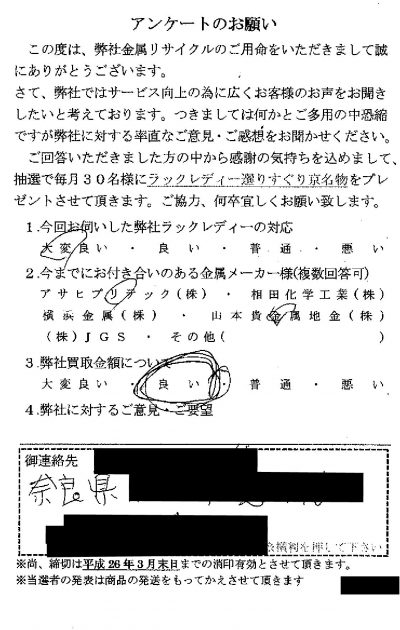 アンケートのお願い
この度は、弊社金属リサイクルのご用命をいただきまして誠
にありがとうございます。
さて、弊社ではサービス向上の為に広くお客様のお声をお聞き
したいと考えております。つきましては何かとご多用の中恐縮
ですが弊社に対する率直なご意見・ご感想をお聞かせください。
ご回答いただきました方の中から感謝の気持ちを込めまして、
抽選で毎月30名様にラックレディー選りすぐり京名物をプレ
ゼントさせて頂きます。ご協力、何卒宜しくお願い致します。
1.今回お伺いした弊社ラックレディーの対応
大変良い・良い・普通・悪い
2.今までにお付き合いのある金属メーカー様(複数回答可)
アサヒプリテック(株)・相田化学工業(株)
横浜金属(株)・山本貴金属地金(株)
(株)JGS・その他( )
3.弊社買取金額について
大変良い・良い・普通・悪い
4.弊社に対するご意見・ご要望
御連絡先
奈良県
を押して下さい
※尚、締切は平成26年3月末日までの消印有効とさせて頂きます。
※当選者の発表は商品の発送をもってかえさせて頂きます